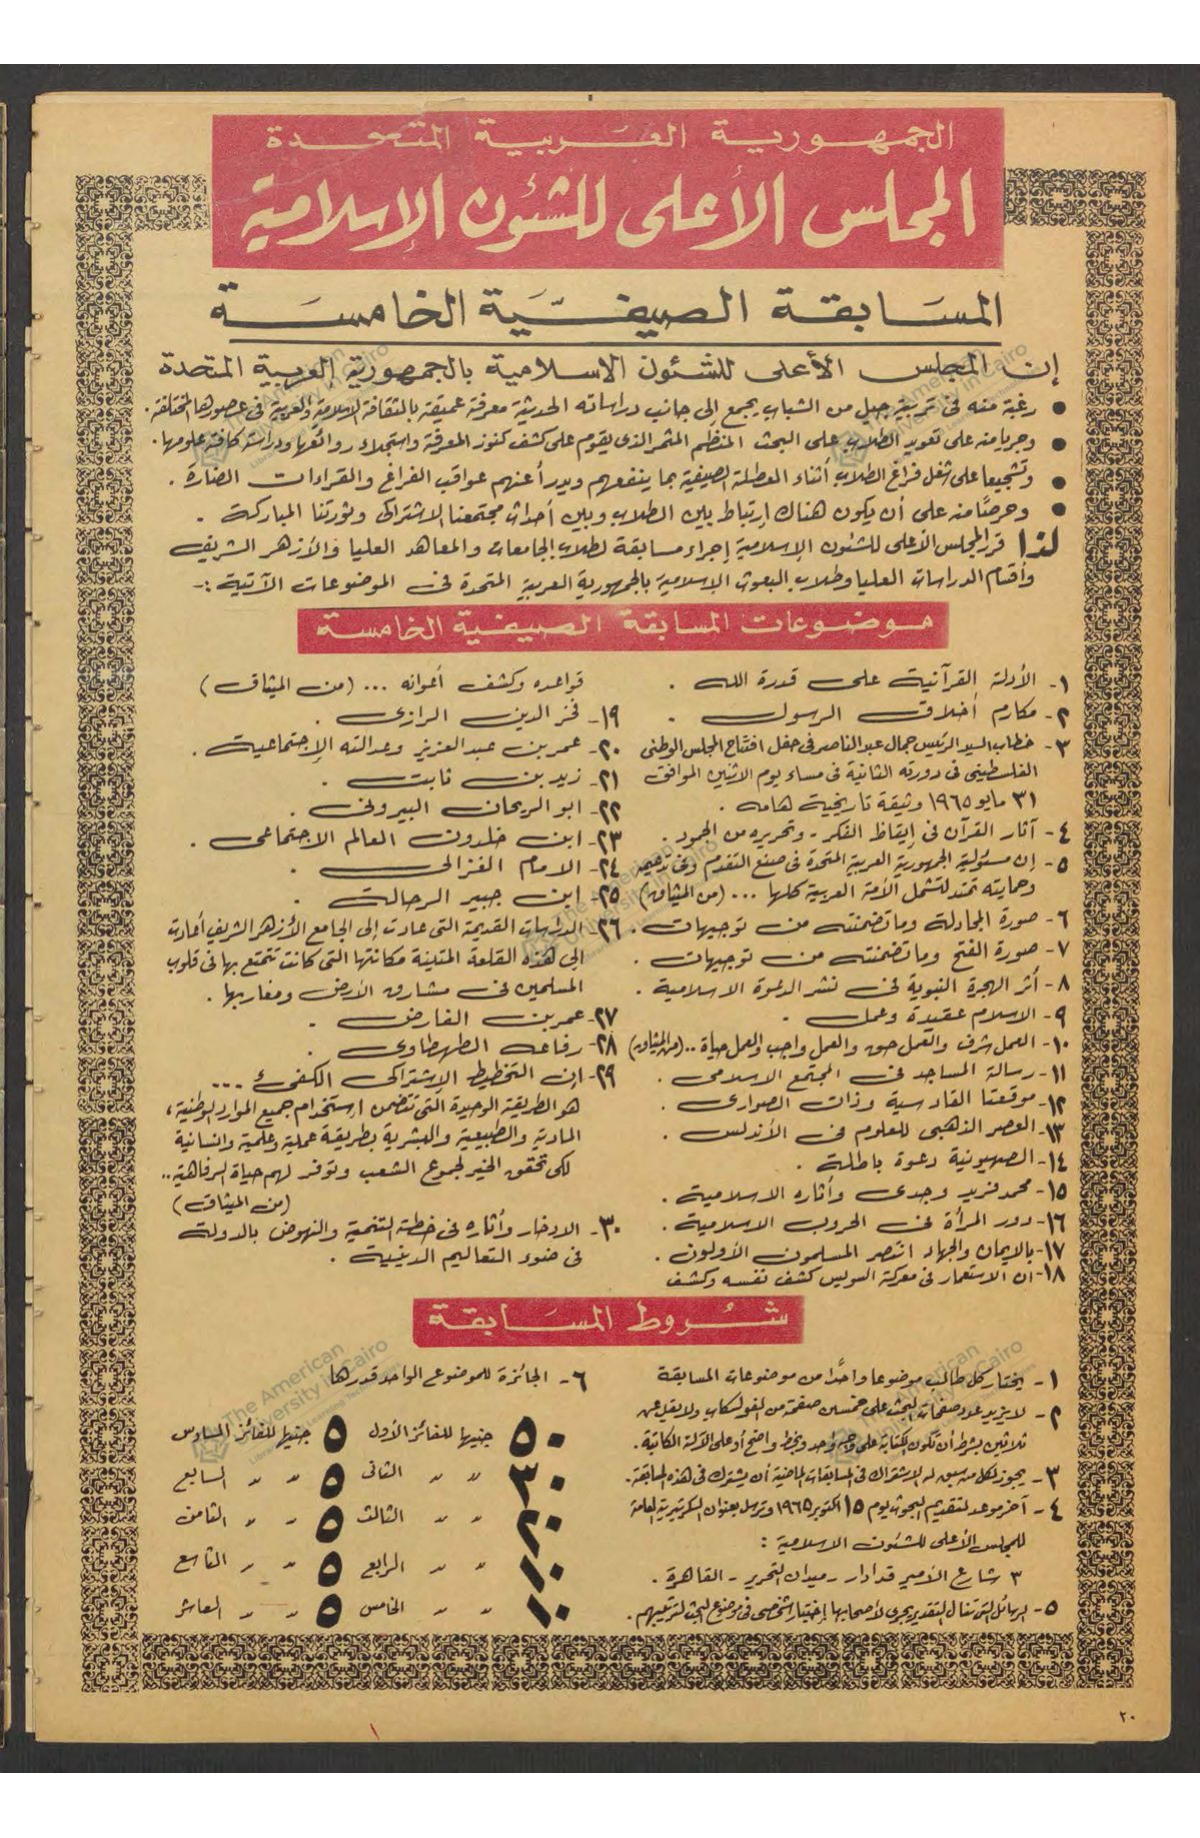 الجمهورية العربية المتحدة
المجلس الأعلى للشئون الإسلامية
المسابقة الصيفية الخامسة
إن المجلس الأعلى للشئون الاسلامية بالجمهورية العربية المتحدة
• رغبة منه فى تربية جيل من الشباب يجمع إلى جانب دراساته الحديثة معرفة عميقة بالثقافة الإسلامية والعربية فى عصورها المختلفة.
• وجريا منه على تعويد الطلاب على البحث المنظم المثمر الذى يقوم على كشف كنوز المعرفة واستجلاء روائعها ودراسة كافة علومها.
• وتشجيعا على شغل فراغ الطلاب أثناء العطلة الصيفية بما ينفعهم ويدرأ عنهم عواقب الفراغ والقراءات الضارة.
• وحرصًا منه على أن يكون هناك إرتباط بين الطلاب وبين أحداث مجتمعنا الاشتراكى وثورتنا المباركة.
لذا قرر المجلس الأعلى للشئون الإسلامية إجراء مسابقة لطلاب الجامعات والمعاهد العليا والأزهر الشريف
وأقسام الدراسات العليا وطلاب البعوث الإسلامية بالجمهورية العربية المتحدة فى الموضوعات الآتية :-
موضوعات المسابقة الصيفية الخامسة
١- الأدلة القرآنية على قدرة الله .
٢- مكارم أخلاق الرسول .
٣- خطاب السيد الرئيس جمال عبد الناصر فى حفل افتتاح المجلس الوطنى
الفلسطينى فى دورته الثانية فى مساء يوم الاثنين الموافق
٣١ مايو ١٩٦٥ وثيقة تاريخية هامه .
٤- آثار القرآن فى إيقاظ الفكر - وتحريره من الجمود .
٥- إن مسئولية الجمهورية العربية المتحدة فى صنع التقدم وفى تدعيمه
وحمايته تمتد لتشمل الأمة العربية كلها ... (من الميثاق)
٦- صورة المجادلة وما تضمنته من توجيهات .
٧- صورة الفتح وما تضمنته من توجيهات .
٨- أثر الهجرة النبوية فى نشر الدعوة الاسلامية .
٩- الاسلام عقيدة وعمل .
١٠- العمل شرف والعمل حق والعمل واجب والعمل حياة .. (من الميثاق)
١١- رسالة المساجد فى المجتمع الاسلامى .
١٢- موقعتا القادسية وذات الصوارى .
١٣- العصر الذهبى للعلوم فى الأندلس .
١٤- الصهيونية دعوة باطلة .
١٥- محمد فريد وجدى وأثاره الاسلامية .
١٦- دور المرأة فى الحروب الاسلامية .
١٧- بالإيمان والجهاد انتصر المسلمون الأولون .
١٨- ان الاستعمار فى معركة السويس كشف نفسه وكشف
قواعده وكشف أعوانه ... (من الميثاق)
١٩- فخر الدين الرازى .
٢٠- عمر بن عبد العزيز وعدالته الإجتماعية .
٢١- زيد بن ثابت .
٢٢- ابو الريحان البيرونى .
٢٣- ابن خلدون العالم الاجتماعى .
٢٤- الامام الغزالى .
٢٥- ابن جبير الرحالة .
٢٦- الدراسات القديمة التى عادت إلى الجامع الأزهر الشريف أعادت
إلى هذه القلعة المتينة مكانتها التى كانت تتمتع بها فى قلوب
المسلمين فى مشارق الأرض ومغاربها .
٢٧- عمر بن الفارض .
٢٨- رفاعه الطهطاوى .
٢٩- ان التخطيط الإشتراكى الكفىء ...
هو الطريقة الوحيدة التى تتضمن إستخدام جميع الموارد الوطنية ،
المادية والطبيعية والبشرية بطريقة عملية وعلمية وانسانية
لكى تحقق الخير لجموع الشعب وتوفر لهم حياة الرفاهية ..
(من الميثاق)
٣٠- الادخار وأثاره فى خطة التنمية والنهوض بالدولة
فى ضوء التعاليم الدينية .
شروط المسابقة
١- يختار كل طالب موضوعا واحدًا من موضوعات المسابقة
٢- لا يزيد عدد صفحات البحث على خمسين صفحة من الفولسكاب ولا يقل عن
ثلاثين بشرط أن تكون الكتابة على وجه واحد وبخط واضح أو على الآلة الكاتبة .
٣- يجوز لكل من سبق له الاشتراك فى المسابقات الماضية أن يشترك فى هذه المسابقة .
٤- آخر موعد لتقديم البحوث يوم ١٥ اكتوبر ١٩٦٥ وترسل بعنوان السكرتيرية العامة
للمجلس الأعلى للشئون الاسلامية :
٣ شارع الأمير قدادار - ميدان التحرير - القاهرة .
٥- الرسائل التى تنال التقدير يجرى لأصحابها إختبار شخصى فى موضوع البحث لترتيبهم .
٦- الجائزة للموضوع الواحد قدرها
٥٠ جنيها للفائز الأول ٥ جنيها للفائز السادس
٤٠ " " الثانى ٥ " " السابع
٣٠ " " الثالث ٥ " " الثامن
٢٠ " " الرابع ٥ " " التاسع
١٠ " " الخامس ٥ " " العاشر
٢٠
The American
University in Cairo